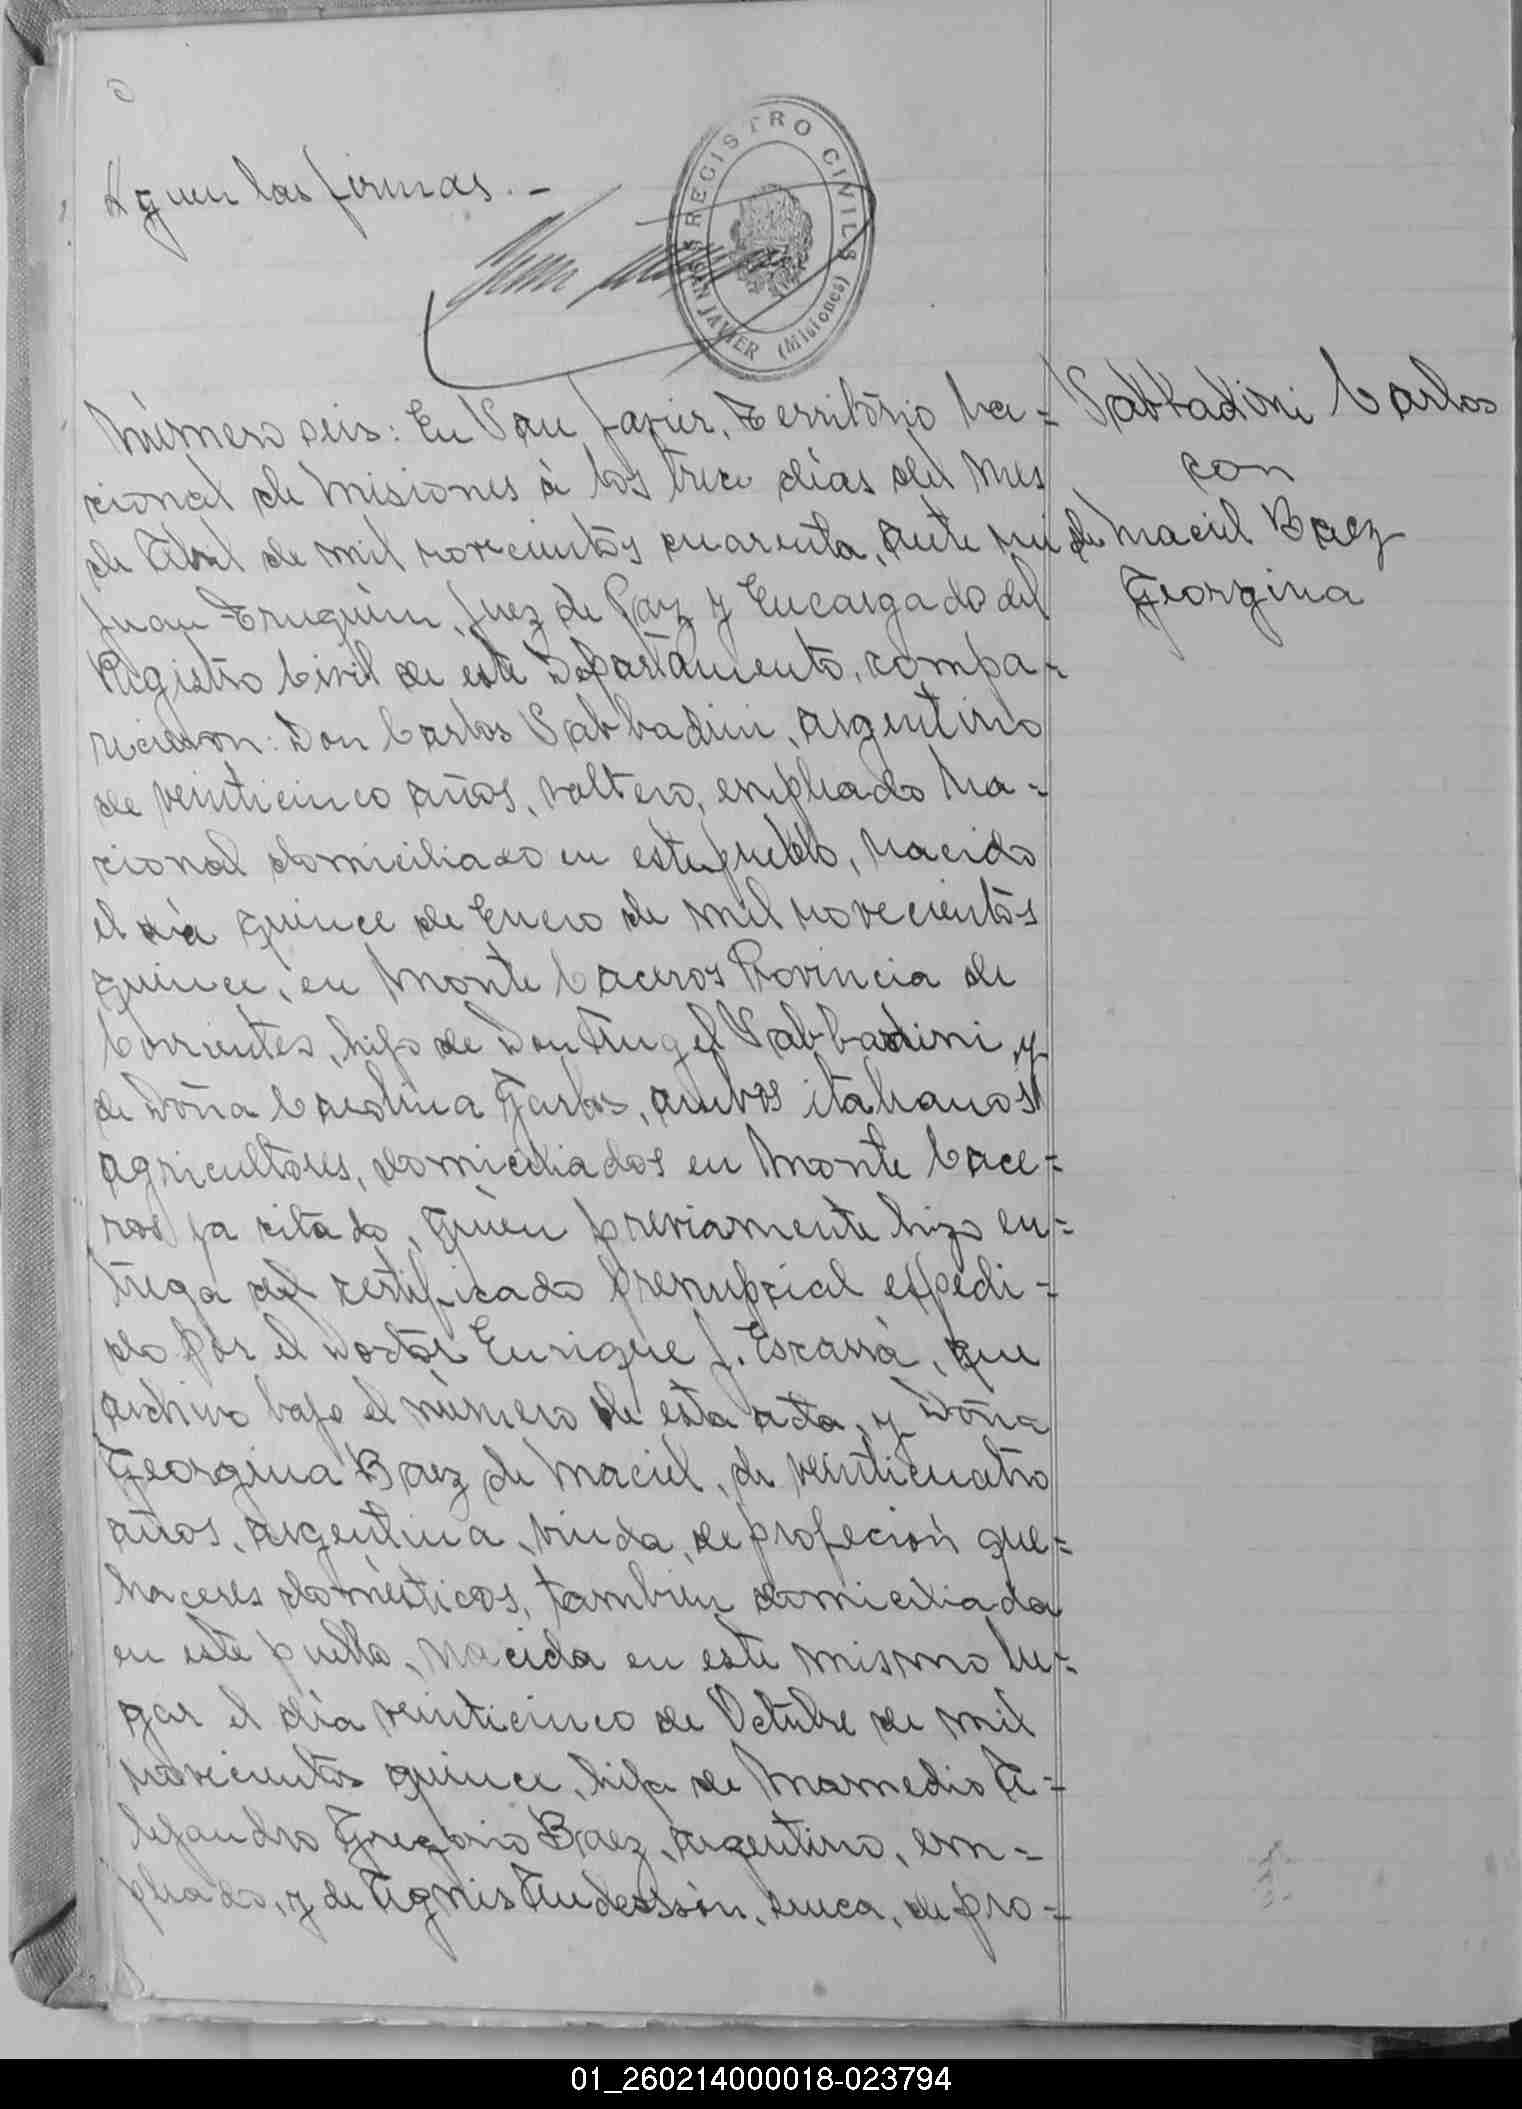 Siguen las firmas.-
REGISTRO CIVIL
SAN JAVIER (Misiones)
Número seis: En San Javier, Território Na=
cional de Misiones á los trece días del mes
de Abril de mil novecientos cuarenta, ante mi
Juan Truquin, Juez de Paz y Encargado del
Registro Civil de este Departamento, compa=
recieron: Don Carlos Sabbadini, argentino
de veinticinco años, soltero, empleado Na=
cional domiciliado en este pueblo, nacido
el día quince de Enero de mil novecientos
quince, en Monte Caceros Provincia de
Corrientes, hijo de Don Angel Sabbadini, y
de Doña Carolina Garbos, ambos italianos
agricultores, domiciliados en Monte Cace=
ros ya citado, quien previamente hizo en=
trega del certificado prenupcial expedi=
do por el Doctor Enrique J. Escarrá, que
archivo bajo el número de esta acta, y Doña
Georgina Baez de Maciel, de veinticuatro
años, argentina, viuda, de profeción que=
haceres doméstícos, también domiciliada
en este pueblo, nacida en este mismo lu=
gar el día veinticinco de Octubre de mil
novecientos quince, hija de Mamedio A=
lejandro Gregorio Baez, argentino, em=
pleado, y de Agnes Anderssón, sueca, de pro=
Sabbadini Carlos
con
de Maciel Baez
Georgina
01_260214000018-023794